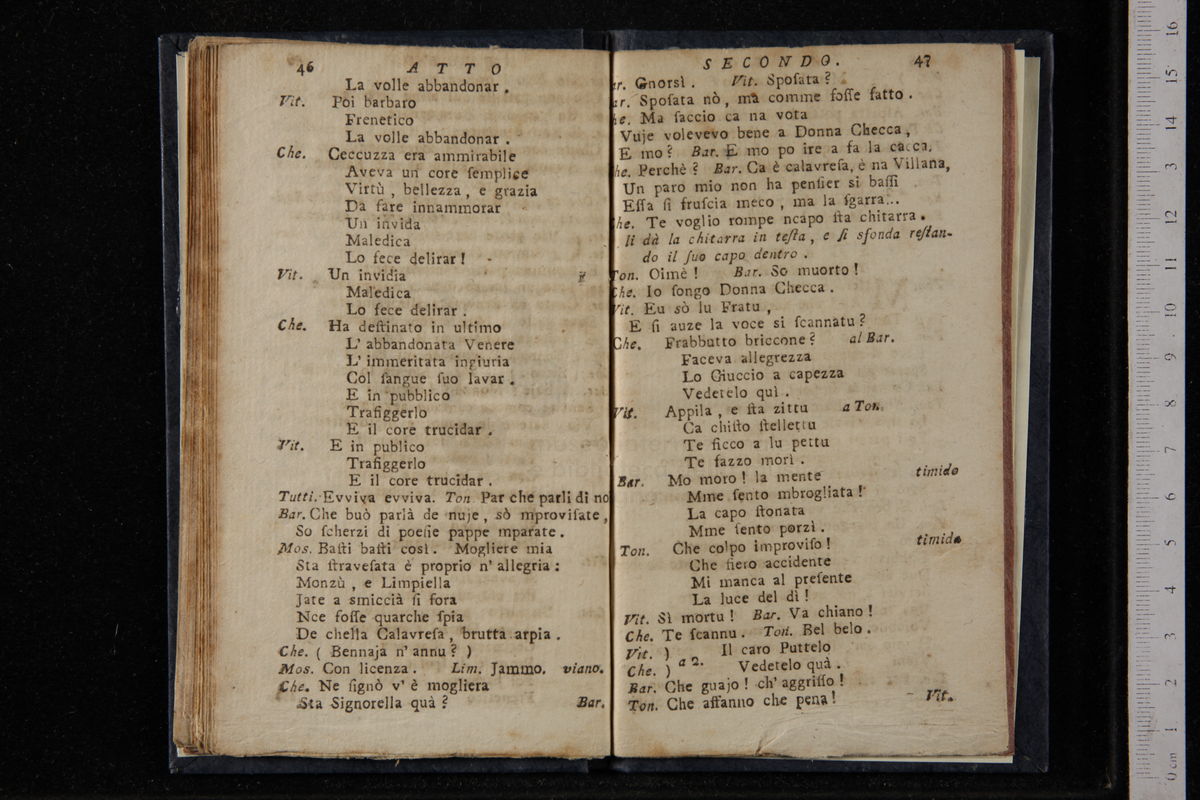 46 ATTO
La volle abbandonar .
Vit. Poi barbaro
Frenetico
La volle abbandonar .
Che. Ceccuzza era ammirabile
Aveva un core ſemplice
Virtù , bellezza , e grazia
Da fare innammorar
Un invida
Maledica
Lo fece delirar !
Vit. Un invidia
Maledica
Lo fece delirar .
Che. Ha deſtinato in ultimo
L' abbandonata Venere
L' immeritata ingiuria
Col ſangue ſuo lavar .
E in pubblico
Trafiggerlo
E il core trucidar .
Vit. E in publico
Trafiggerlo
E il core trucidar .
Tutti. Evviva evviva. Ton Par che parli di no
Bar. Che buò parlà de nuje , sò mproviſate ,
So ſcherzi di poeſie pappe mparate .
Mos. Baſti baſti così . Mogliere mia
Sta ſtraveſata è proprio n' allegria :
Monzù , e Limpiella
Jate a smiccià ſi fora
Nce foſſe quarche ſpia
De chella Calavreſa , brutta arpia .
Che. ( Bennaja n' annu ? )
Mos. Con licenza . Lim. Jammo. viano.
Che. Ne ſignò v' è mogliera
Sta Signorella quà ? Bar.
SECONDO. 47
ar. Gnorsì . Vit. Spoſata ?
ar. Spoſata nò , ma comme foſſe fatto .
he. Ma ſaccio ca na vota
Vuje volevevo bene a Donna Checca ,
E mo ? Bar. E mo po ire a fa la cacca.
he. Perchè ? Bar. Ca è calavreſa, è na Villana,
Un paro mio non ha penſier si baſſi
Eſſa ſi fruſcia meco , ma la ſgarra...
he. Te voglio rompe ncapo ſta chitarra .
li dà la chitarra in teſta , e ſi sfonda reſtan-
do il ſuo capo dentro .
Ton. Oimè ! Bar. So muorto !
Che. Io ſongo Donna Checca .
Vit. Eu sò lu Fratu ,
E ſi auze la voce si ſcannatu ?
Che. Frabbutto briccone ? al Bar.
Faceva allegrezza
Lo Giuccio a capezza
Vedetelo quì .
Vit. Appila , e ſta zittu a Ton.
Ca chiſto ſtellettu
Te ficco a lu pettu
Te fazzo morì .
Bar. Mo moro ! la mente timido
Mme ſento mbrogliata !
La capo ſtonata
Mme ſento porzì .
Ton. Che colpo improviſo ! timido
Che fiero accidente
Mi manca al preſente
La luce del dì !
Vit. Sì mortu ! Bar. Va chiano !
Che. Te ſcannu . Ton. Bel belo .
Vit. ) a 2. Il caro Puttelo
Che. ) Vedetelo quà .
Bar. Che guajo ! ch' aggriſſo !
Ton. Che affanno che pena !
Vit.